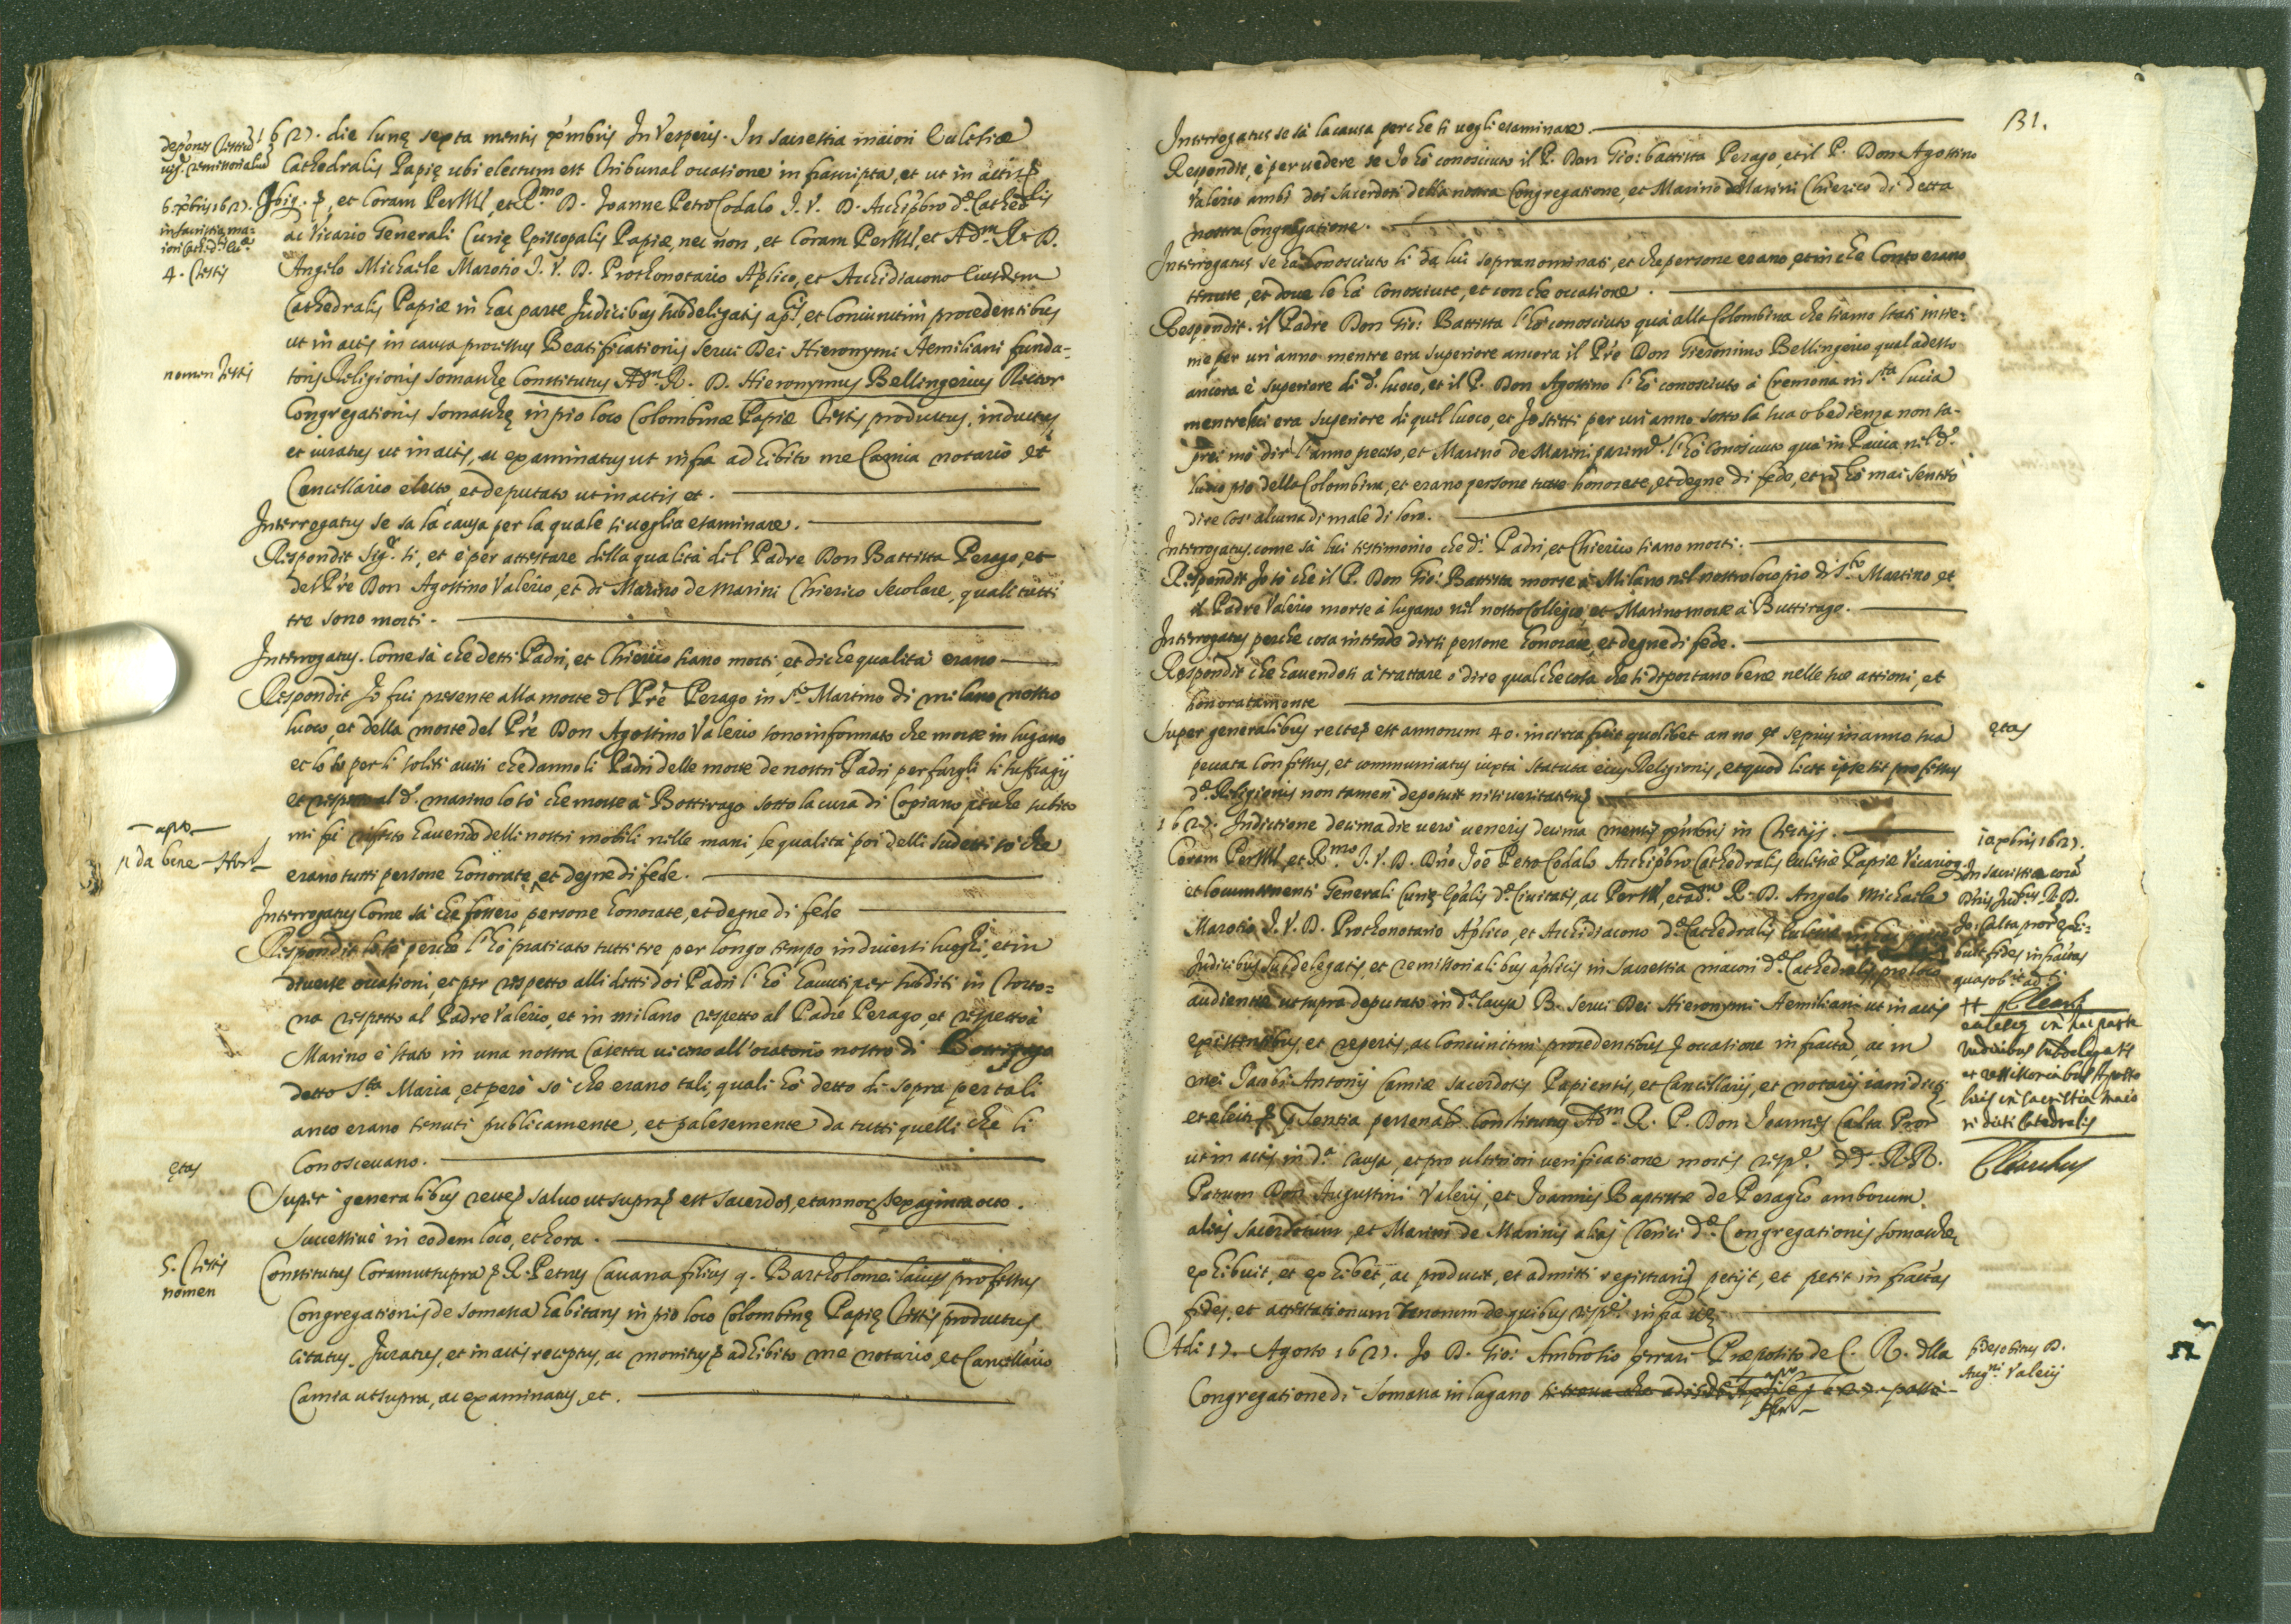 depones testium
vig.e remissorialium
6. xbris 1627.
in sacristia ma:
iori Cath.lis ecc.æ
4. testis
1627. die lunę sexta mensis xmbris In Vesperis. In sacrestia maiori Ecclesiæ
Cathedralis Papię ubi electum est Tribunal occatione infrascripta, et ut in actis
et coram Perill.i, et R.mo D. Joanne Petro Codalo J. V. D. Archipbro d.æ Cathedlis
ac Vicario Generali Curię Episcopalis Papiæ, nec non, et Coram Perill.i, et Ad.m R. D.
Angelo Michaele Marotio J. V. D. Prothonotario Aplico, et Archidiacono Eiusdem
Cathedralis Papiæ in hac parte Judicibus subdeligatis ap.cis, et coniunctim procedentibus
ut in actis in causa processus Beatificationis Serui Dei Hieronymi Aemiliani funda-
nomen testis
toris Religionis somaschę Constitutus Ad.m R. D. Hieronymus Bellingerius Rector
Congregationis somaschę in pio loco Colombinæ Papiæ testis productus, inductus,
et iuratus ut in actis, ac examinatus ut infra adhibito me Camia notario et
Cancellario electo, et deputato ut in actis et.
Interrogatus se sa la causa per la quale si voglia esaminare.
Respondit sig.r si, et è per attestare della qualità del Padre Don Battista Perago, et
del Pre Don Agostino Valerio, et di Marino de Marini Chierico secolare, quali tutti
tre sono morti.
Interrogatus. Come sà che detti Padri, et Chierico siano morti, et di che qualità erano
Respondit Io fui presente alla morte del Pre Perago in S.to Martino di milano nostro
luoco, et della morte del Pre Don Agostino Valerio sono informato che morse in lugano
et lo so per li soliti auisi che danno li Padri delle morte de nostri Padri per fargli li suffragij
et rispetto al d.o marino lo sò che morse à Bottirago sotto la cura di Copiano perche subito
mi fù hauendo delli nostri mobili nelle mani, le qualità poi delli sudetti sò che
apro
da bene
erano tutti persone honorate, et degne di fede.
Interrogatus Come sà che fossero persone honorate, et degne di fede
Respondit lo sò perche l'hò praticato tutti tre per longo tempo in diuersi luoghi, et in
diuerse occationi, et per rispetto alli detti doi Padri l'hò hauuti per subditi in Torto:
na rispetto al Padre Valerio, et in milano rispetto al Padre Perago, et rispetto à
Marino è stato in una nostra Casetta vicino all'oratorio nostro di
detto S.ta Maria, et però sò che erano tali, quali hò detto di sopra per tali
anco erano tenuti publicamente, et palesemente da tutti quelli che li
Conosceuano.
ętas
Super generalibus recte saluo ut supra est sacerdos, et annor. sexaginta octo.
Successiue in eodem loco, et hora.
5. testis
nomen
Constitutus Coram ut supra R. Petrus Cauana filius q. Bartholomei laicus professus
Congregationis de somasca habitans in pio loco Colombinę Papię testis productus
citatus. Juratus, et in actis receptus, ac monitus adhibito me notario, et Cancellario
Camia ut supra, ac examinatus, et.
131.
Interrogatus se sà la causa perche si vogli esaminare.
Respondit, è per vedere se Io hò conosciuto il P. Don Gio: battista Perago, et il P. Don Agostino
Valerio ambi doi sacerdoti della nostra Congregatione, et Marino de Marini Chierico di detta
nostra Congregatione.
Interrogatus se hà conosciuto li da lui sopranominati, et che persone erano, et in che Conto erano
tenute, et doue le hà conosciute, et con che occatione.
Respondit. il Padre Don Gio: Battista l'hò conosciuto quà alla Colombina che siamo stati insie:
me per un'anno mentre era superiore ancora il Pre Don Gieronimo Bellingerio qual adesso
ancora è superiore di d.o luoco, et il P. Don Agostino l'hò conosciuto à Cremona in S.ta lucia
mentre lui era superiore di quel luoco, et Io stetti per un'anno sotto la sua obedienza non sa-
prei mò dir l'anno preciso, et Marino de Marini parim.te l'hò conosciuto quà in Pauia nel d.o
luoco pio della Colombina, et erano persone tutte honorate, et degne di fede, et nō hò mai sentito
dire cos' alcuna di male di loro.
Interrogatus. come sà lui testimonio che d.i Padri, et Chierico siano morti.
Respondit Io sò che il P. Don Gio: Battista morse à Milano nel nostro loco pio di S.to Martino et
il Padre Valerio morse à lugano nel nostro Collegio, et Marino morse à Buttirago.
Interrogatus perche cosa intende dirsi persone honorate, et degne di fede.
Respondit che hauendosi à trattare ò dire qualche cosa che si diportano bene nelle sue attioni, et
honoratamente
etas
Super generalibus recte est annorum 40. incirca fuit quolibet anno et sepius in anno sua
peccata confessus, et communicatus iuxta statuta eius Religionis, et quod licet ipse sit professus
d.æ Religionis non tamen deposuit nisi veritatem
1627. Indictione decima die verò veneris decima mensis xmbris in Tertijs.
Coram Perill.i, et R.mo J. V. D. Dno Joē Petro Codalo Archipbro Cathedralis Ecclesiæ Papiæ Vicario
et locumtenenti Generali Curię Epālis d.æ Ciuitatis, ac Perill.i, et ad.m R. D. Angelo Michaele
Marotio J. V. D. Prothonotario Aplico, et Archidiacono d.æ Cathedralis
Judicibus subdelegatis, et remissorialibus aplicis in sacrestia maiori d.æ Cathedralis pro loco
audientiæ ut supra deputato in d.a Causa B. Serui Dei Hieronymi Aemiliani ut in actis
existentibus, et reseris, ac coniunctim procedentibus occatione infrāctā, ac in
mei Jacobi Antonij Camiæ sacerdotis Papiensis, et Cancellarij, et notarij iamdicti
et electi sentia personalr. Constitutus Ad.m R. P. Don Joannes Calta Pror
ut in actis in d.a Causa, et pro ulteriori verificatione mortis resp.e dd. R.R.
Patrum Don Augustini Valerij, et Joannis Baptistæ de Peragho amborum
alias sacerdotum, et Marini de Marinis alias Clerici d.æ Congregationis somaschę
exhibuit, et exhibet, ac producit, et admitti registrari petijt, et petit infrāctas
fides, et attestationum tenorum de quibus resp.e infra
10 xbris 1627.
In sacristia corā
Dnis Jud.bus R. D.
Jo: Calta pror exhi:
buit fides infrātas
quas ob. ad.
ecclesię in hac parte
iudicibus subdelegatis
et remissorialibus Aposto
licis in sacristia maio
ri dicti Catedralis
Adi 17. Agosto 1627. Io D. Gio: Ambrosio ferrari Preposito de C. R. dlla
Congregatione di Somasca in lugano
fides obitus D.
Aug.ni Valerij